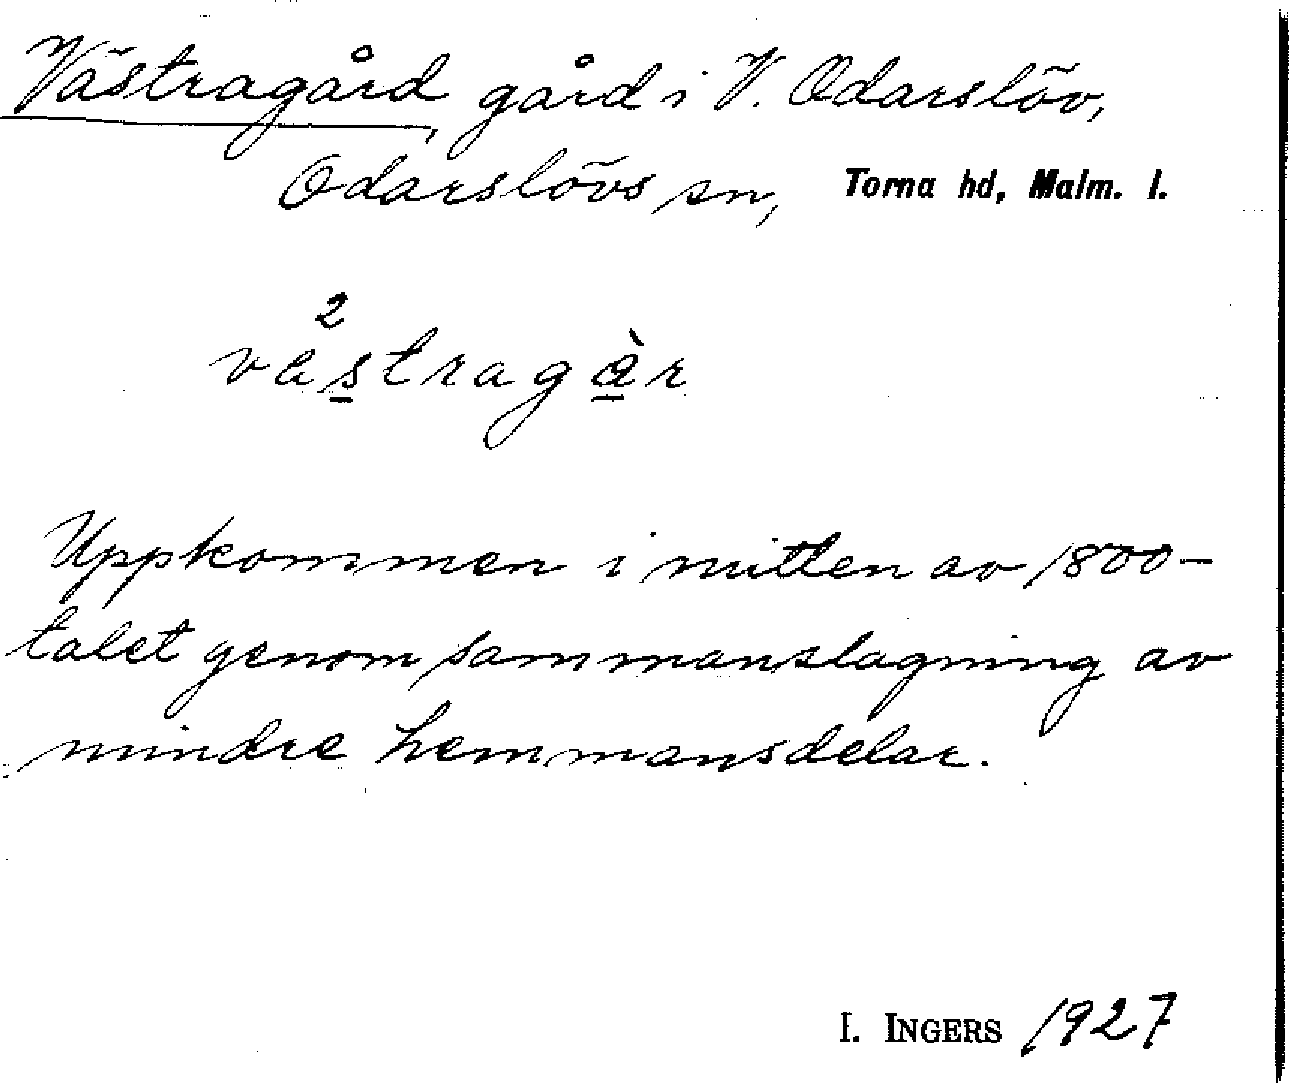 Västragård, gård i V. Odarslöv,
Odarslövs sn, Torna hd, Malm. l.
2
västragàr
Uppkommen i mitten av 1800-
talet genom sammanslagning av
mindre hemmansdelar.
I. INGERS 1927